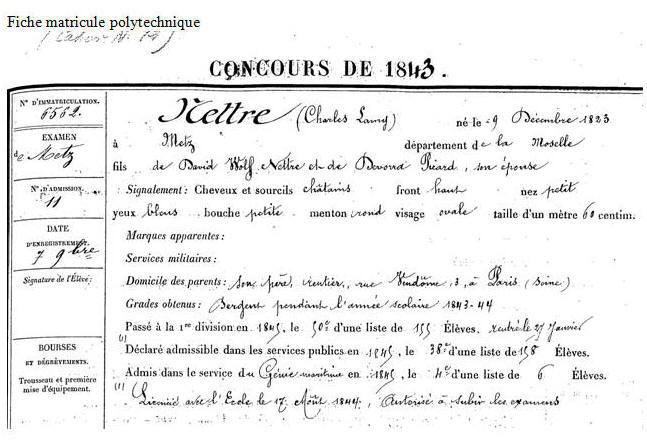 Fiche matricule polytechnique
(Cahier N. 19)
CONCOURS DE 1843.
N° D'IMMATRICULATION.
6562.
EXAMEN
de Metz
N° D'ADMISSION.
11
DATE
D'ENREGISTREMENT.
7 9bre
Signature de l'Élève:
BOURSES
ET DÉGRÈVEMENTS.
Trousseau et première
mise d'équipement.
Nettre (Charles Lamy) né le 9 Décembre 1823
à Metz département de la Moselle
fils de David Wolf Nettre et de Devorra Picard, son épouse
Signalement: Cheveux et sourcils châtains front haut nez petit
yeux bleus bouche petite menton rond visage ovale taille d'un mètre 60 centim.
Marques apparentes:
Services militaires:
Domicile des parents: son père, rentier, rue Vendôme, 3, à Paris (Seine)
Grades obtenus: Sergent pendant l'année scolaire 1843-44
Passé à la 1re division en 1845, le 50e d'une liste de 155 Élèves. rentré le 27 Janvier
(1) Déclaré admissible dans les services publics en 1845, le 38e d'une liste de 158 Élèves.
Admis dans le service du Génie maritime en 1845, le 4e d'une liste de 6 Élèves.
(1) Licencié avec l'Ecole le 17 Août 1844, Autorisé à subir les examens